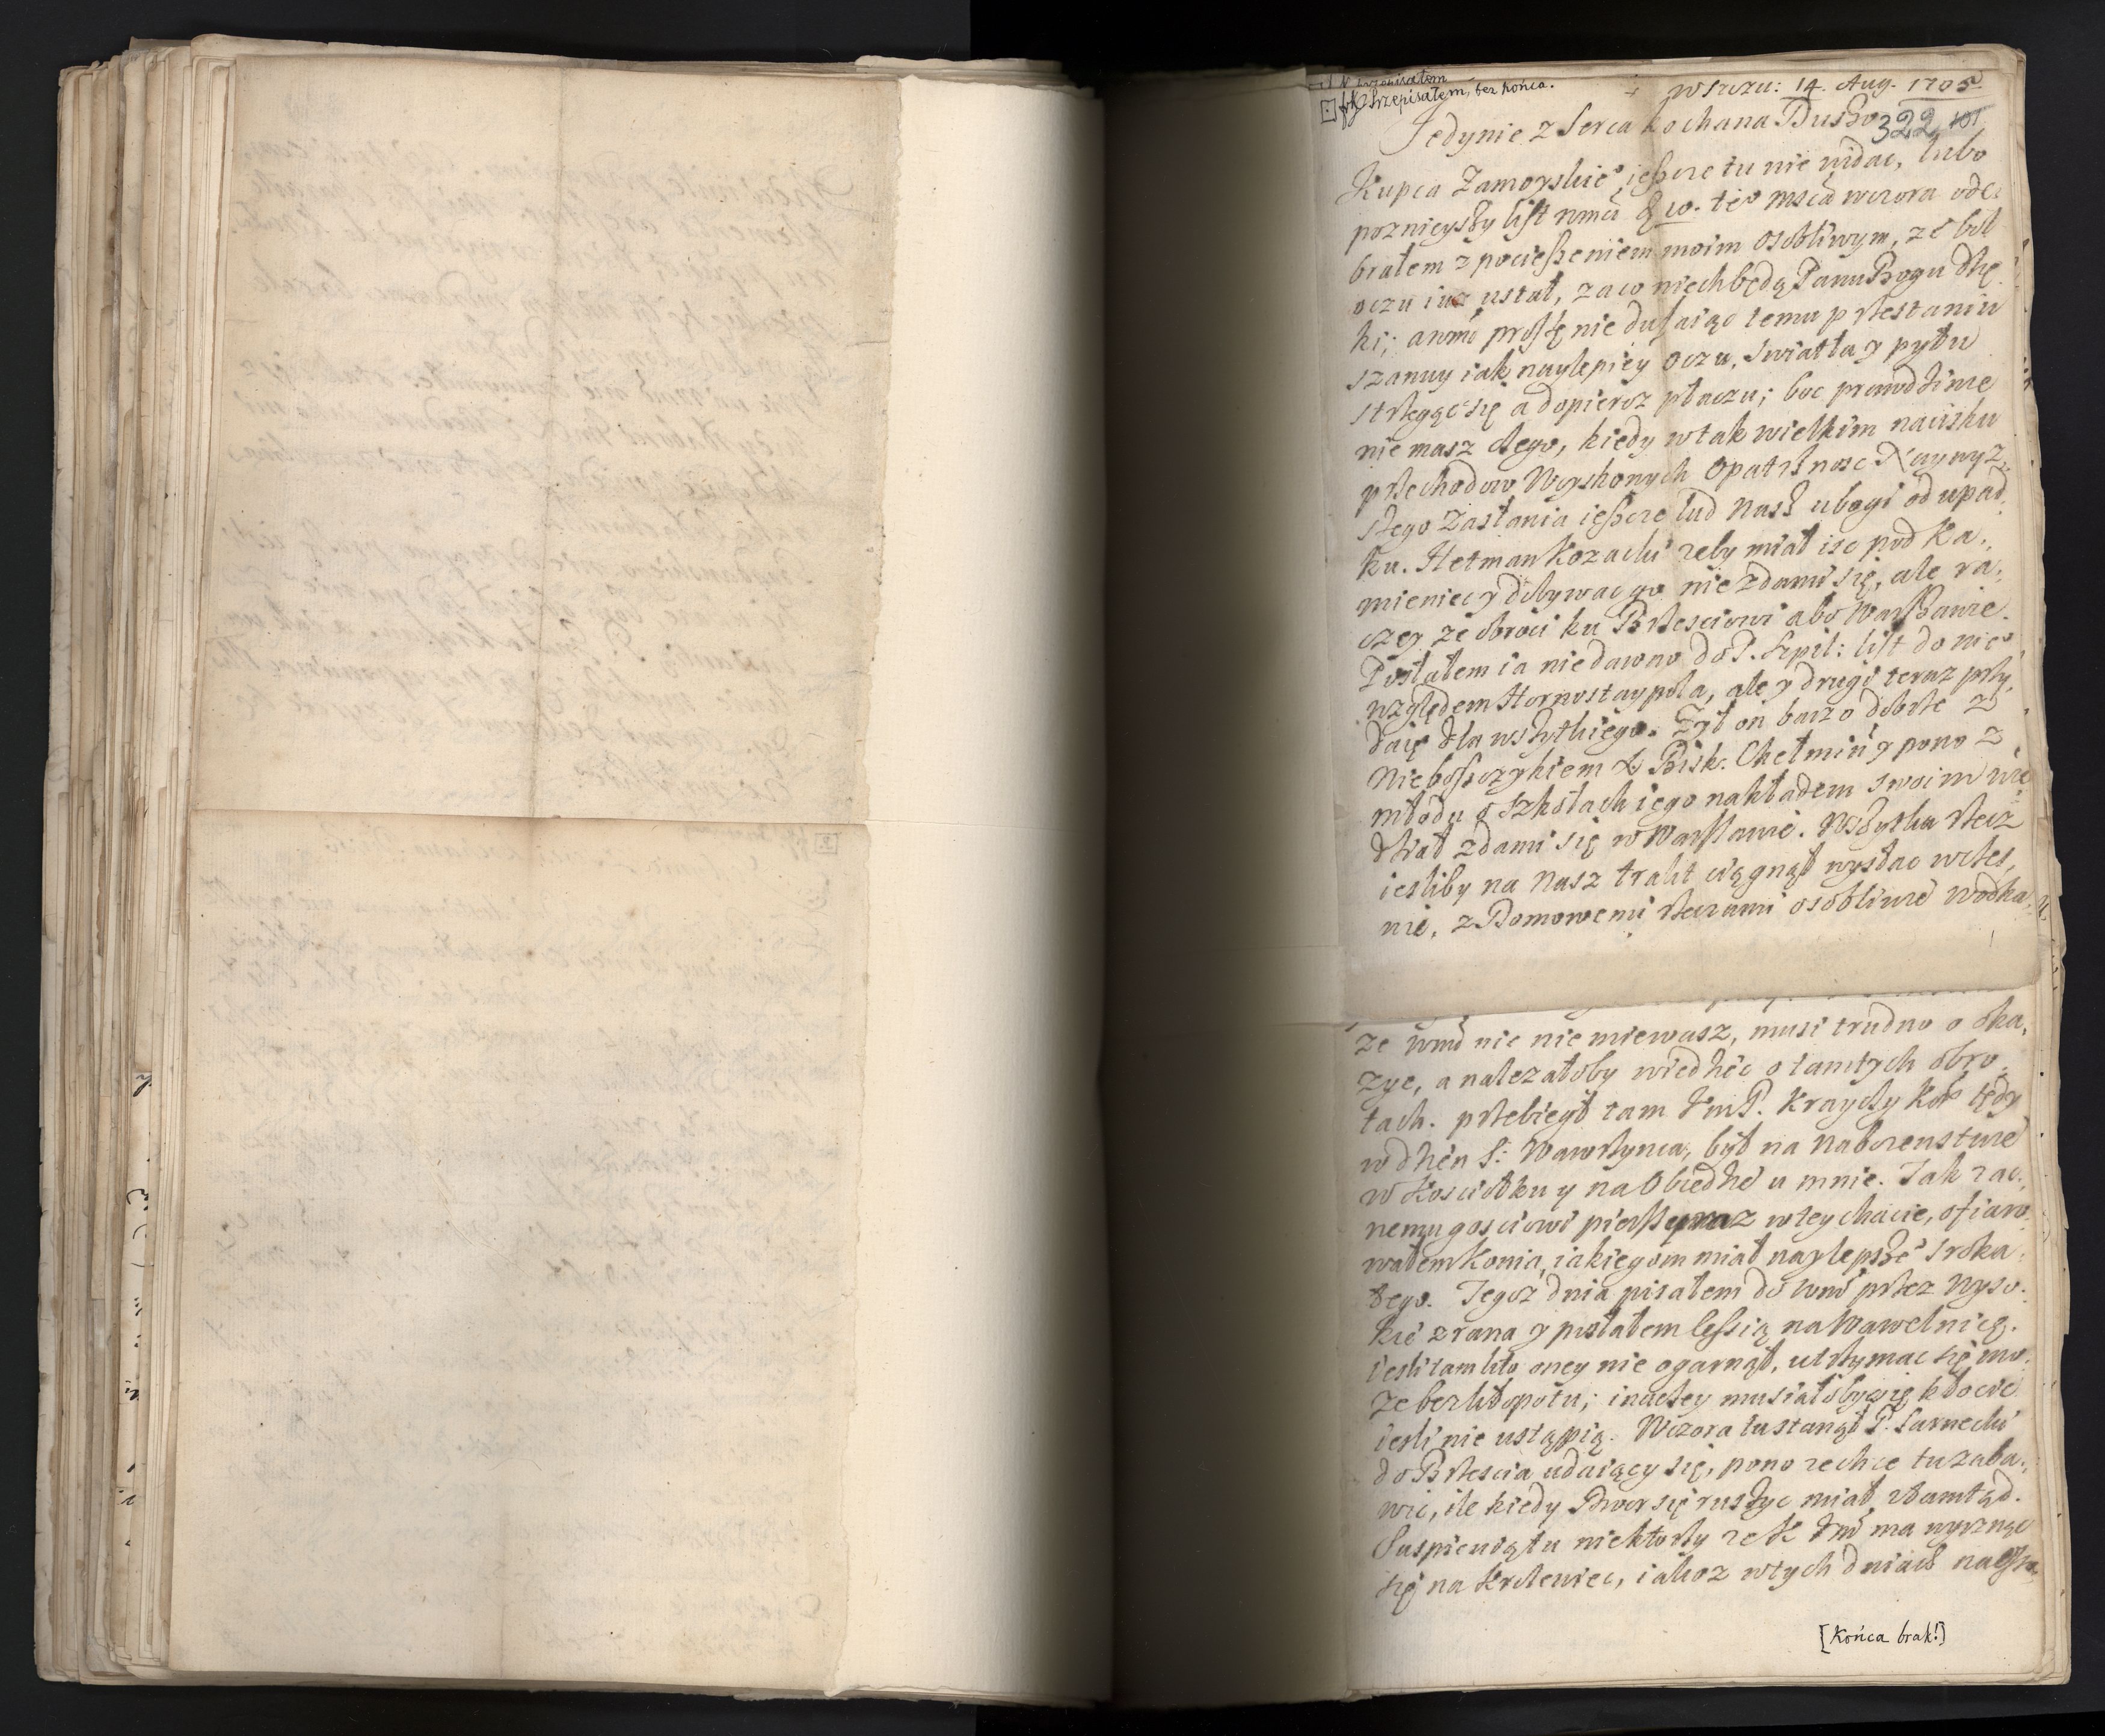 Przepisałem, bez końca.
14. Aug. 1705
322 101
Jedynie z Serca kochana Duszo
Kupca Zamoyskie° ieszcze tu nie widac, lubo
poznieyszy list wmci 10. te° msca wczora ode,
brałem z pocieszeniem moim osobliwym, ze bol
oczu iuz ustał, za co niech będą Panu Bogu dzię
ki; a wmć proszę nie dufaiąc temu przestaniu
szanuy iak naylepiey oczu, swiatła y pyłu
strzegąc się a dopieroz płaczu; boc prawdziwie
nie masz czego, kiedy w tak wielkim nacisku
przechodow Woyskonych Opatrznosc Naywyz,
szego zasłania ieszcze lud nasz ubogi od upad,
ku. Hetman Kozacki zeby miał isc pod Ka,
mieniec y dobywac go nie zdami się, ale ra,
czey ze obroci ku Brzesciowi abo Warszawie.
Posłałem ia niedawno do P. Szpil: list do nie°
względem Hornostaypola, ale y drugi teraz przy,
daię dla wszytkiego. Zył on barzo dobrze z
Nieboszczykiem X. Bisk. Chełmin y pono z
młodu o szkołach iego nakładem swoim wie
dział zdami się w Warszawie. Wszytka rzecz
iesliby na nasz trakt ciągnął wysłac wczes,
nie, z Domowemi rzeczami osobliwie wodka,
ze wmć nic nie miewasz, musi trudno o oka,
zye, a nalezałoby wiedziec o tamtych obro,
tach. przebiegł tam JmP. Krayczy Kor tędy
w dzień S: Wawrzynca, był na nabozenstwie
w Kosciołku y na Obiedzie u mnie. Jak zac,
nemu gosciowi pierszy raz w tey chacie, ofiaro
wałem Konia, iakiegom miał naylepsze° sroka,
tego. Tegoz dnia pisałem do wmć przez Wyso,
kie z rana y posłałem Lessią na Wawelnicę.
iesli tam kto oney nie ogarnął, utrzymac się mo,
ze bez kłopotu; inaczey musiałobysię kłocic
iesli nie ustąpią. Wczora tu stanął P. Sarnecki
do Brzescia udaiący się, pono zechce tu zaba,
wic, ile kiedy Dwor się ruszyc miał ztamtąd.
Suspicuią tu niektorzy ze K Jmć ma wyrznąc
się na Krolewiec, iakoz w tych dniach
[Końca brak!]